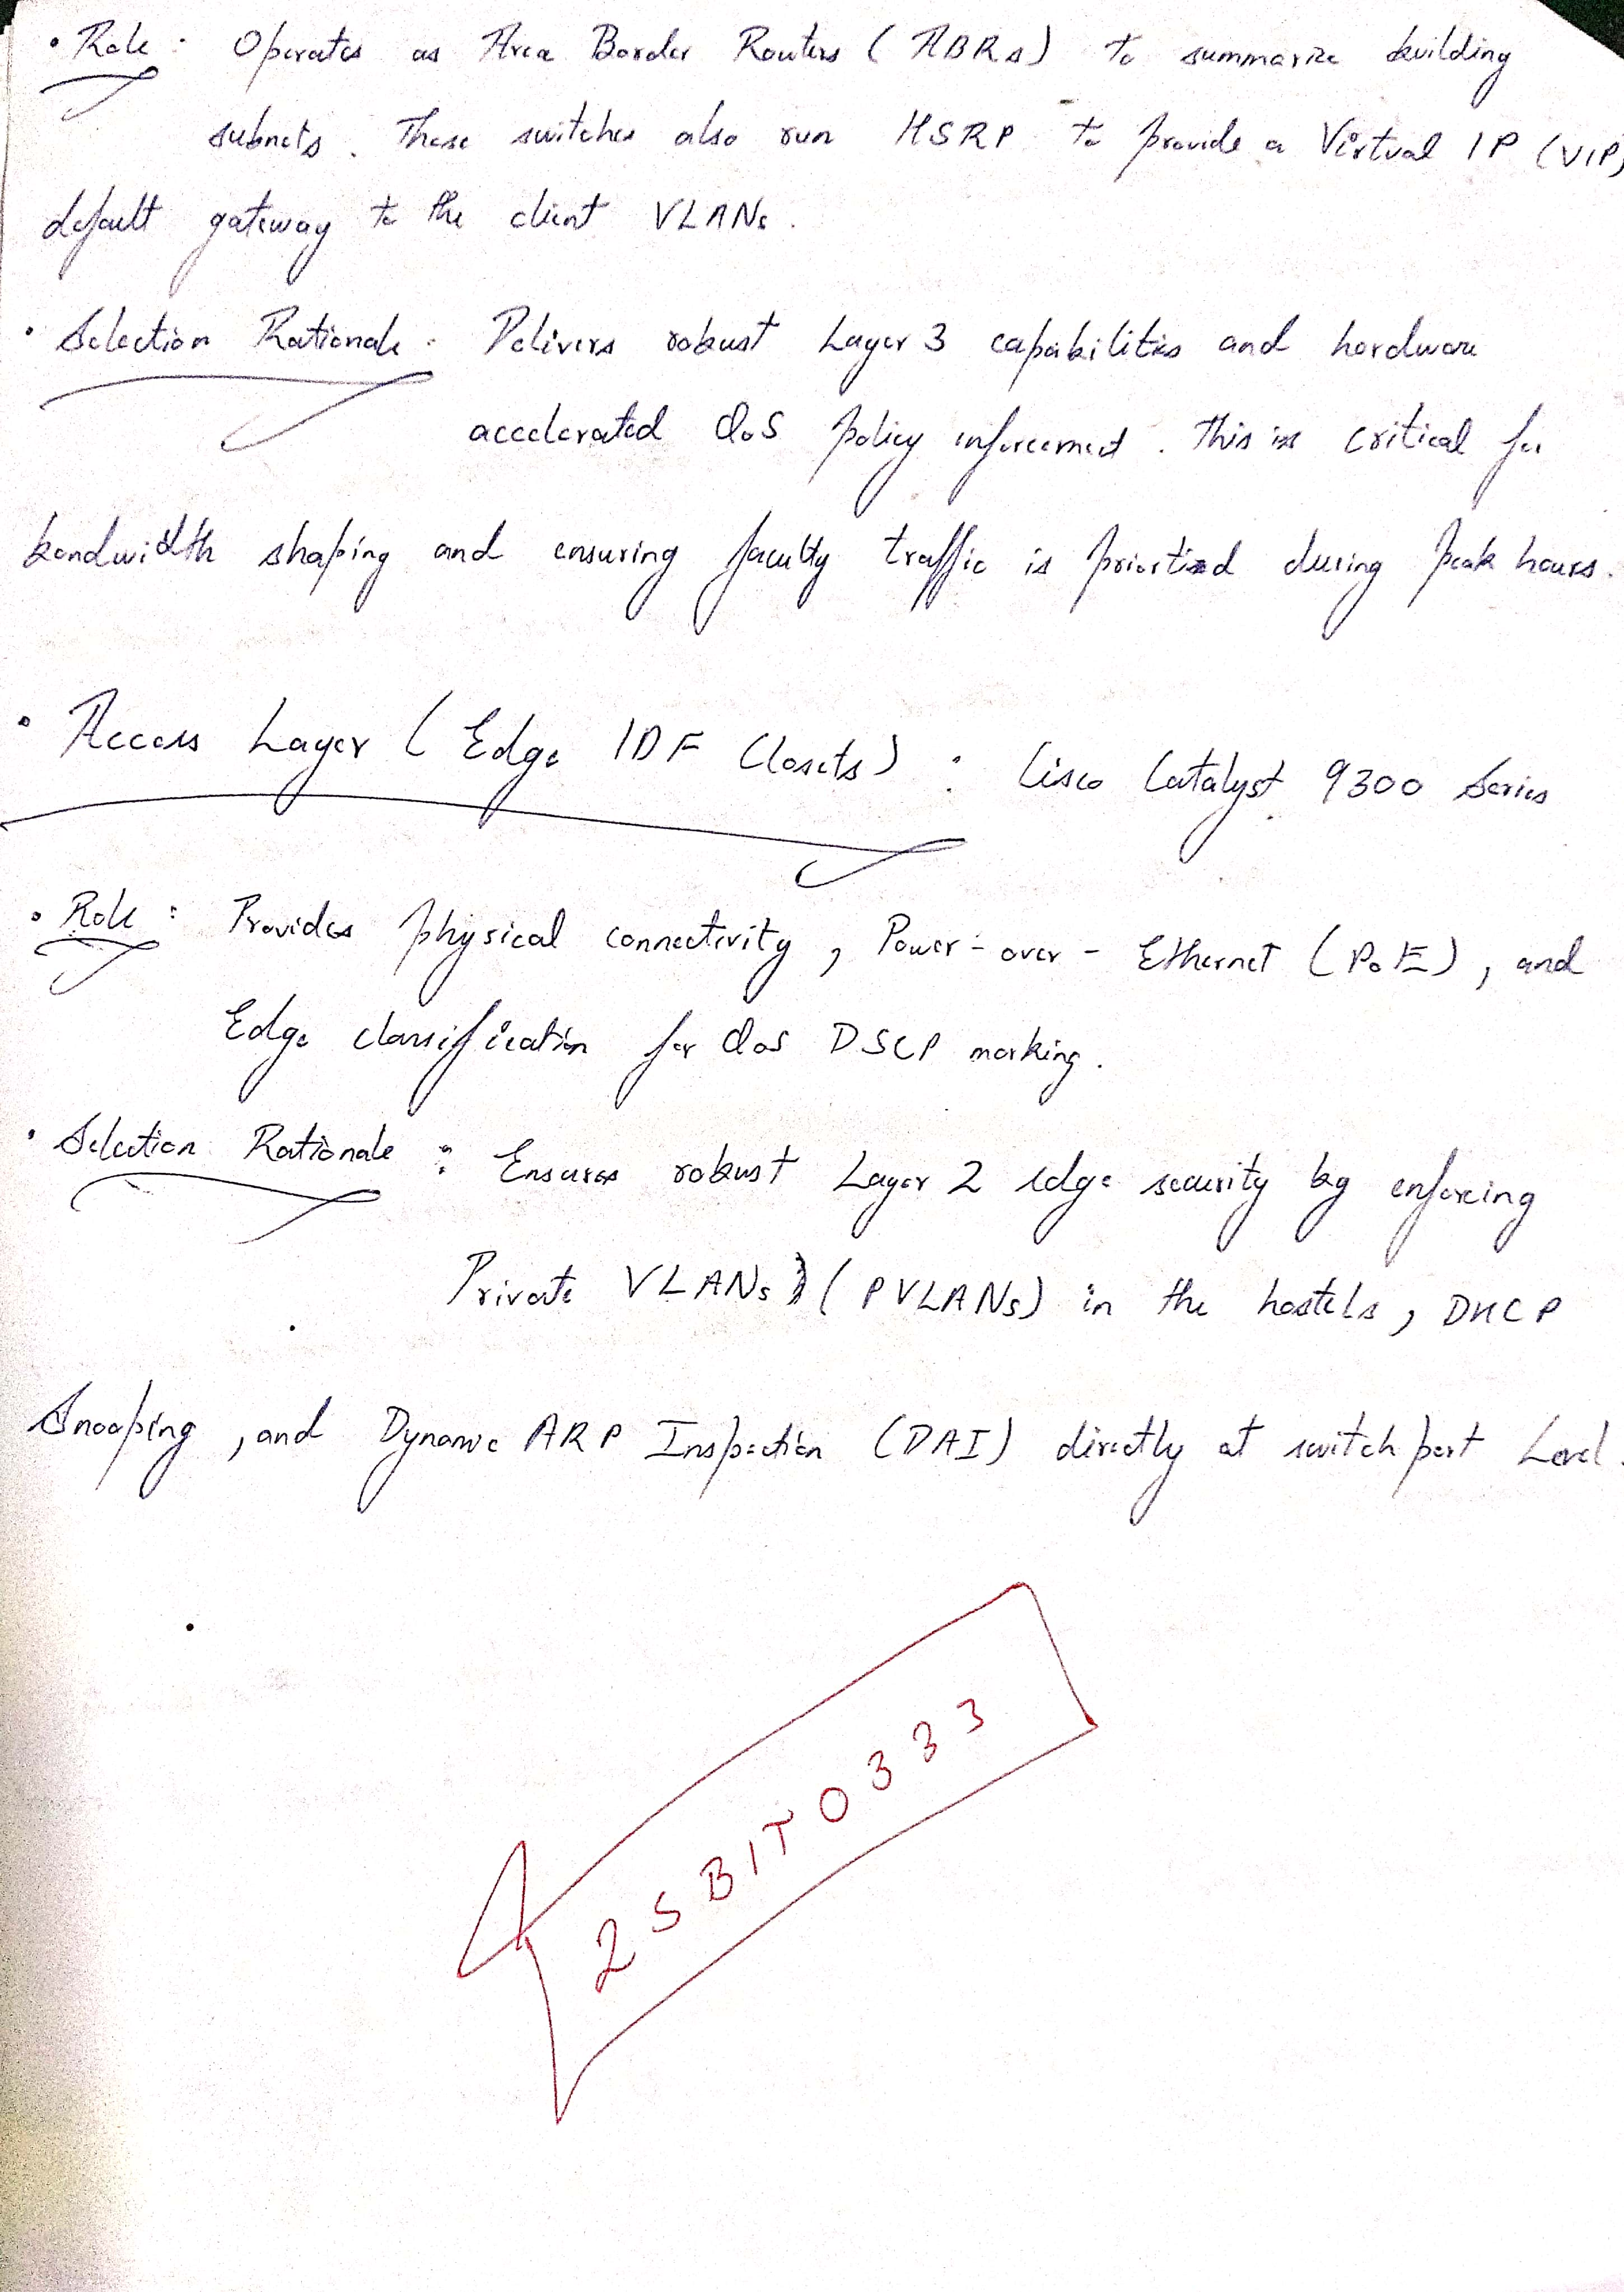 • Role : Operates as Area Border Routers (ABRs) to summarize building
subnets. These switches also run HSRP to provide a Virtual IP (VIP)
default gateway to the client VLANs.
• Selection Rationale : Delivers robust Layer 3 capabilities and hardware
accelerated QoS policy enforcement. This is critical for
bandwidth shaping and ensuring faculty traffic is priortized during peak hours.
• Access Layer (Edge IDF Closets) : Cisco Catalyst 9300 Series
• Role : Provides physical connectivity, Power-over-Ethernet (PoE), and
Edge classification for QoS DSCP marking.
• Selection Rationale : Ensures robust Layer 2 edge security by enforcing
Private VLANs (PVLANs) in the hostels, DHCP
Snooping, and Dynamic ARP Inspection (DAI) directly at switch port Level.
25BIT0333